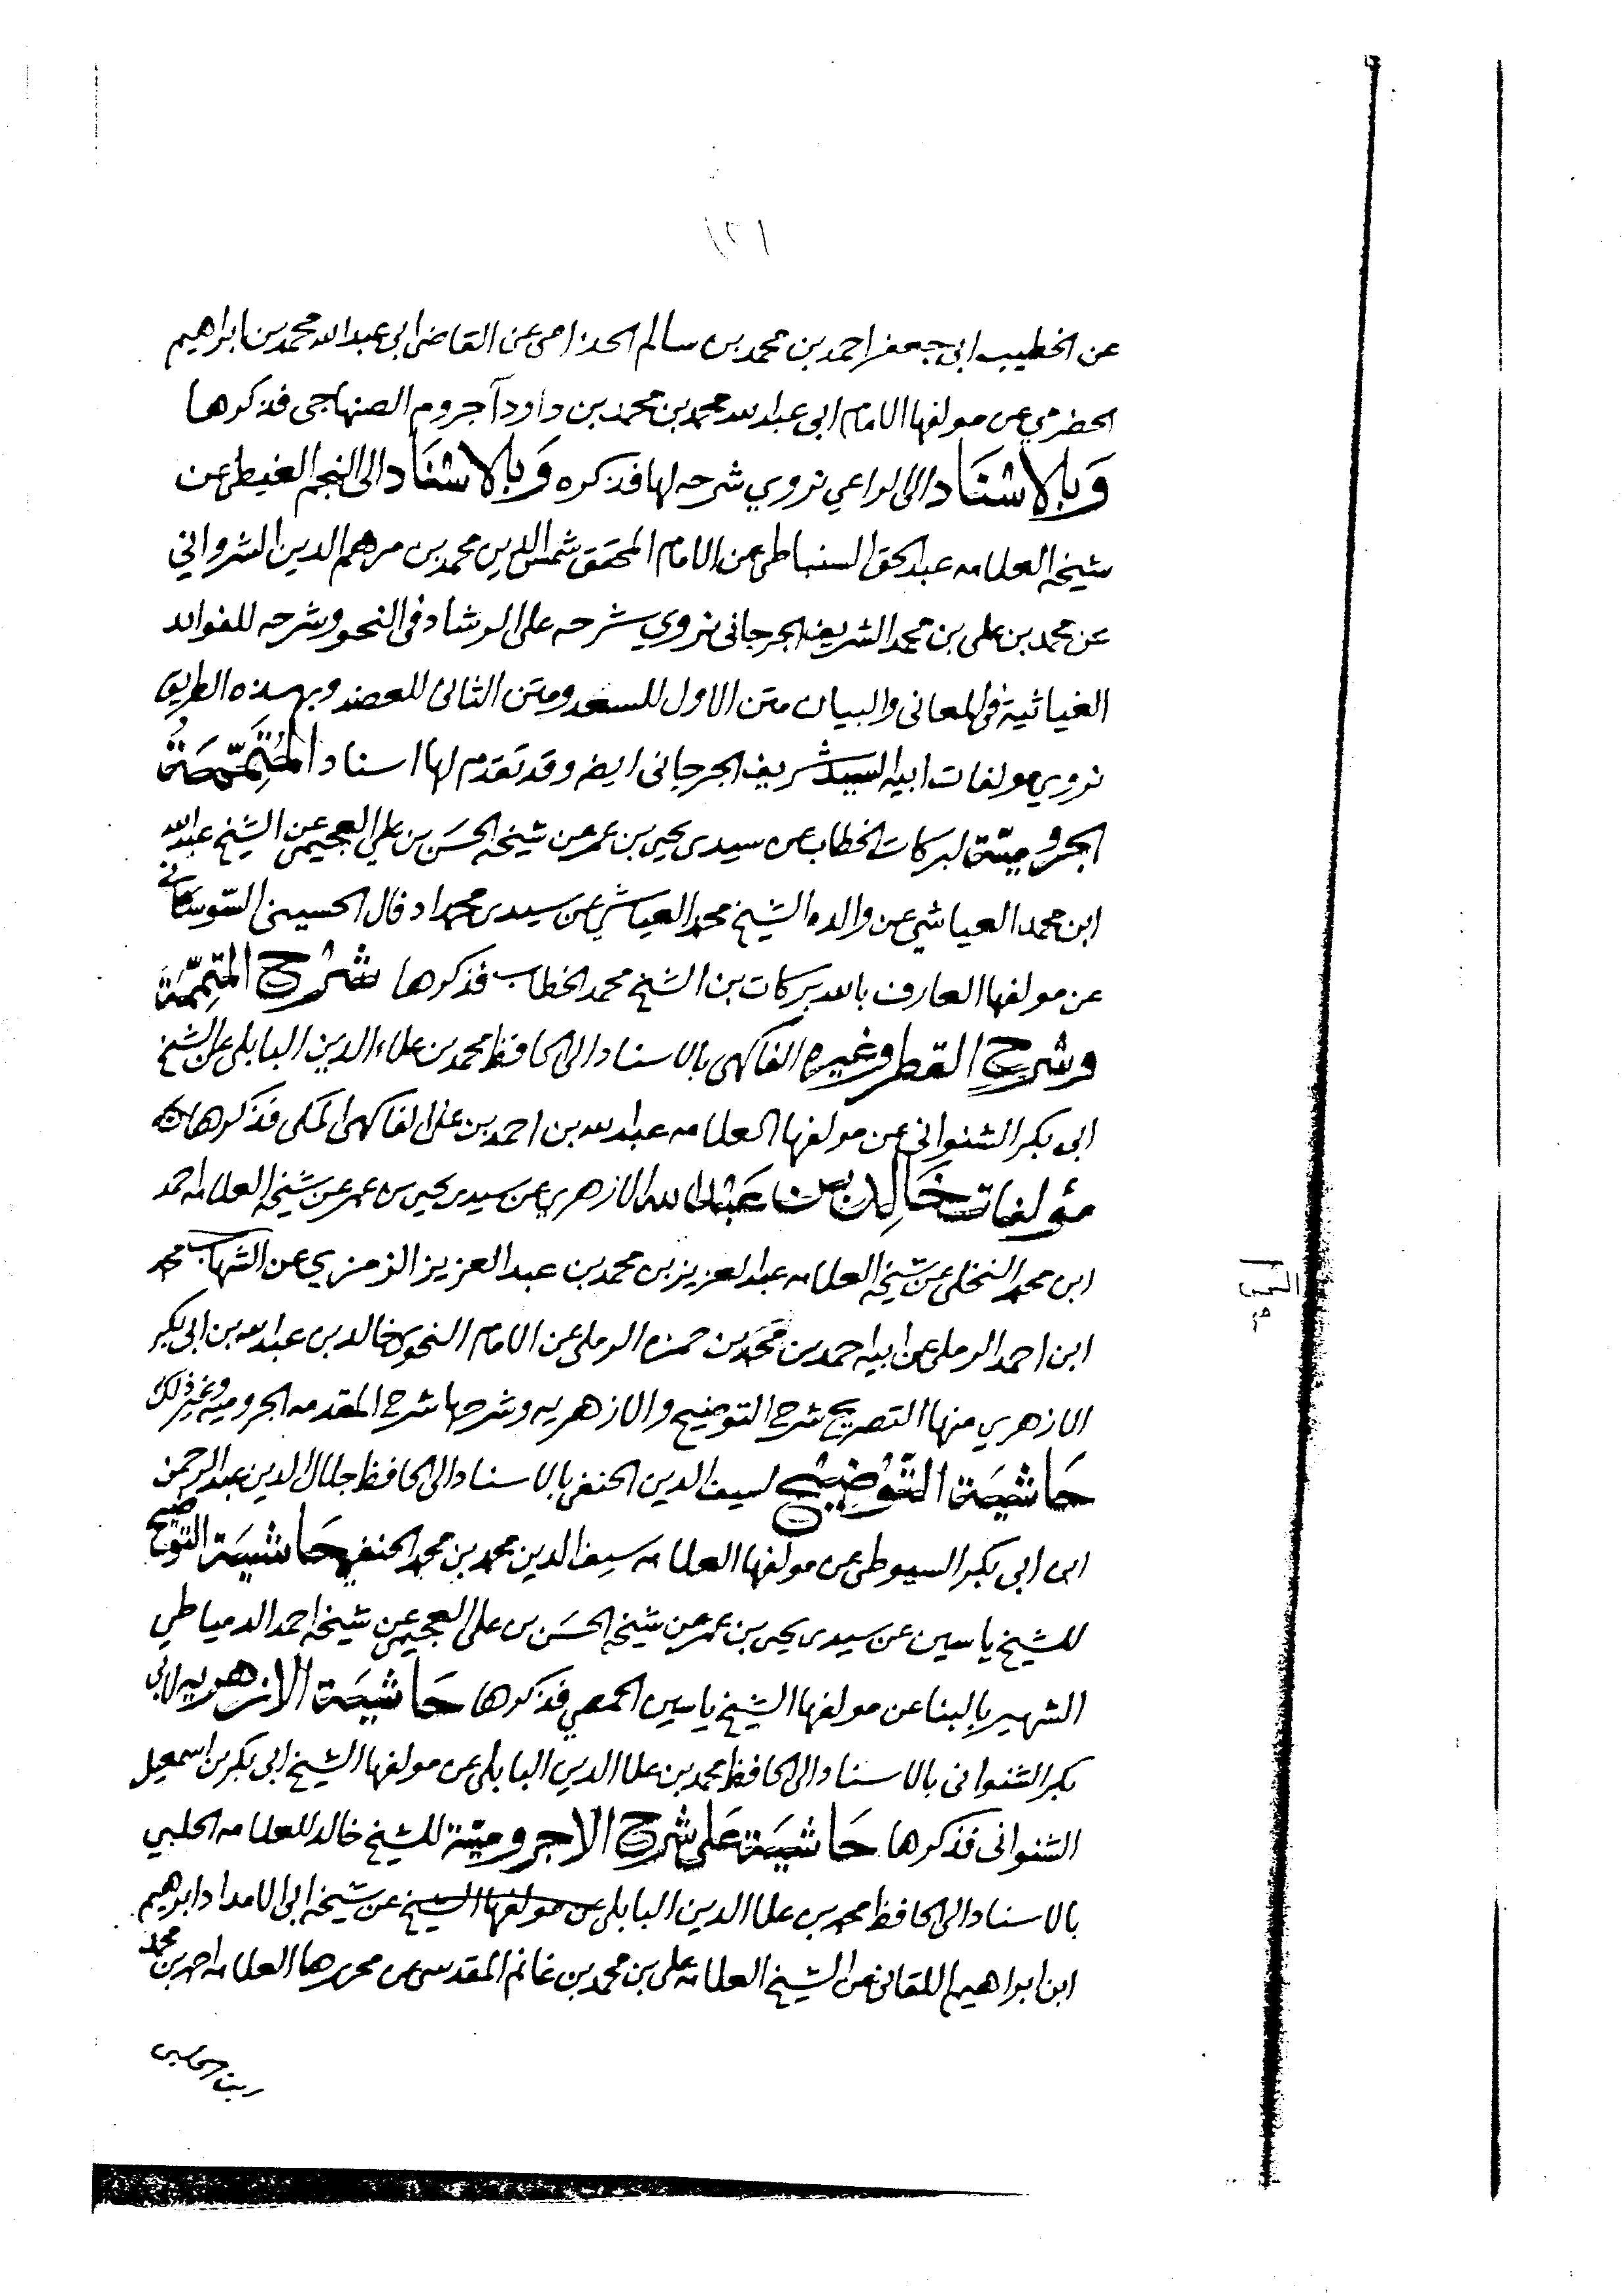 عن الخطيب ابى جعفر احمد بن محمد بن سالم الجذامى عن القاضى ابى عبد الله محمد بن ابراهيم
الحضرمي عن مولفها الامام ابى عبد الله محمد بن محمد بن داود آجروم الصنهاجى فذكرها
وَبالاسْنَاد الى الراعي نروي شرحه لها فذكره وَبالاسْنَاد الى النجم الغيطى عن
شيخه العلامه عبد الحق السنباطى عن الامام المحقق شمس الدين محمد بن مرهم الدين الشرواني
عن محمد بن على بن محمد الشريف الجرجانى نروي شرحه على الارشاد فى النحو وشرحه للفوائد
الغياثية فى المعانى والبيان متن الاول للسعد ومتن الثانى للعضد وبهذه الطريق
نروي مولفات ابيه السيد شريف الجرجانى ايضا وقد تقدم لها اسناد المُتَمِّمَةُ
الجروميّة لبركات الخطاب عن سيدى يحيى بن عمر عن شيخه الحسَن بن علي العجيمى عن الشيخ عبد الله
ابن محمد العياشي عن والده الشيخ محمد العياشي عن سيدى محمد ادفال الحسينى السّوسانى
عن مولفها العارف بالله بركات بن الشيخ محمد الخطاب فذكرها شرْح المتمِّمَة
وشرح القطر وغيره الفاكهى بالاسناد الى الحافظ محمد بن علاء الدين البابلى عن الشيخ
ابى بكر الشنوانى عن مولفها العلامه عبد الله بن احمد بن على الفاكهى المكى فذكرها
مؤلفات خَالِد بن عَبْد الله الازهري عن سيدى يحيى بن عمر عن شيخه العلامه احمد
ابن محمد النخلى عن شيخه العلامه عبد العزيز بن محمد بن عبد العزيز الزمزمي عن الشهاب محمد
ابن احمد الرملى عن ابيه احمد بن محمد بن حمزه الرملى عن الامام النحوى خالد بن عبد الله بن ابى بكر
الازهري منها التصريح شرح التوضيح والازهريه وشرحها شرح المقدمه الجروميه وغير ذلك
حَاشيَة التّوْضِيْح لسيف الدين الحنفى بالاسناد الى الحافظ جلال الدين عبد الرحمن
ابن ابى بكر السيوطى عن مولفها العلامه سيف الدين محمد بن محمد الحنفى حَاشيَة التوضيح
للشيخ ياسين عن سيدى يحيى بن عمر عن شيخه الحسَن بن على العجيمى عن شيخه احمد الدمياطي
الشهير بالبنا عن مولفها الشيخ ياسين الحمصي فذكرها حَاشيَة الازهريه لابى
بكر الشنوانى بالاسناد الى الحافظ محمد بن علا الدين البابلى عن مولفها الشيخ ابى بكر بن اسمعيل
الشنوانى فذكرها حَاشيَة عَلى شرح الاجروميّة للشيخ خالد للعلامه الحلبي
بالاسناد الى الحافظ محمد بن علا الدين البابلى عن مولفها الشيخ عن شيخه ابى الامداد ابراهيم
ابن ابراهيم اللقانى عن الشيخ العلامه على بن محمد بن غانم المقدسى عن محررها العلامه احمد بن محمد